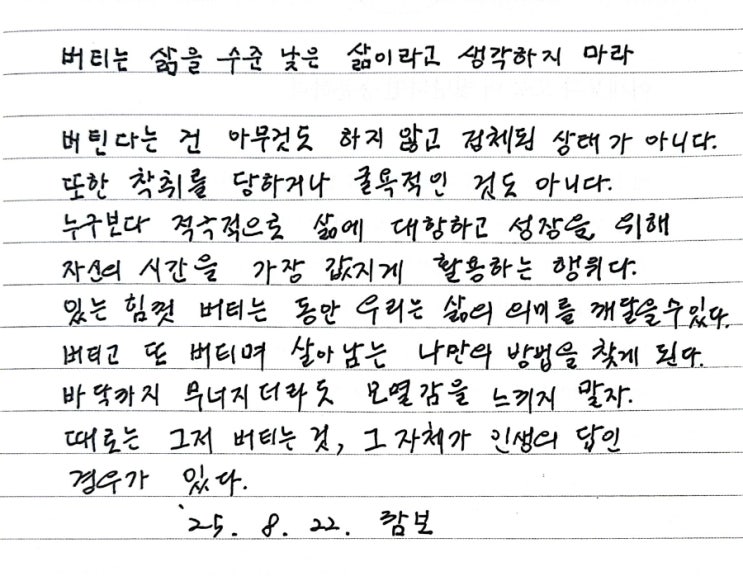 버티는 삶을 수준 낮은 삶이라고 생각하지 마라
버틴다는 건 아무것도 하지 않고 정체된 상태가 아니다.
또한 착취를 당하거나 굴욕적인 것도 아니다.
누구보다 적극적으로 삶에 대항하고 성장을 위해
자신의 시간을 가장 값지게 활용하는 행위다.
있는 힘껏 버티는 동안 우리는 삶의 의미를 깨달을 수 있다.
버티고 또 버티며 살아남는 나만의 방법을 찾게 된다.
바닥까지 무너지더라도 모멸감을 느끼지 말자.
때로는 그저 버티는 것, 그 자체가 인생의 답인
경우가 있다.
'25. 8. 22. 람보